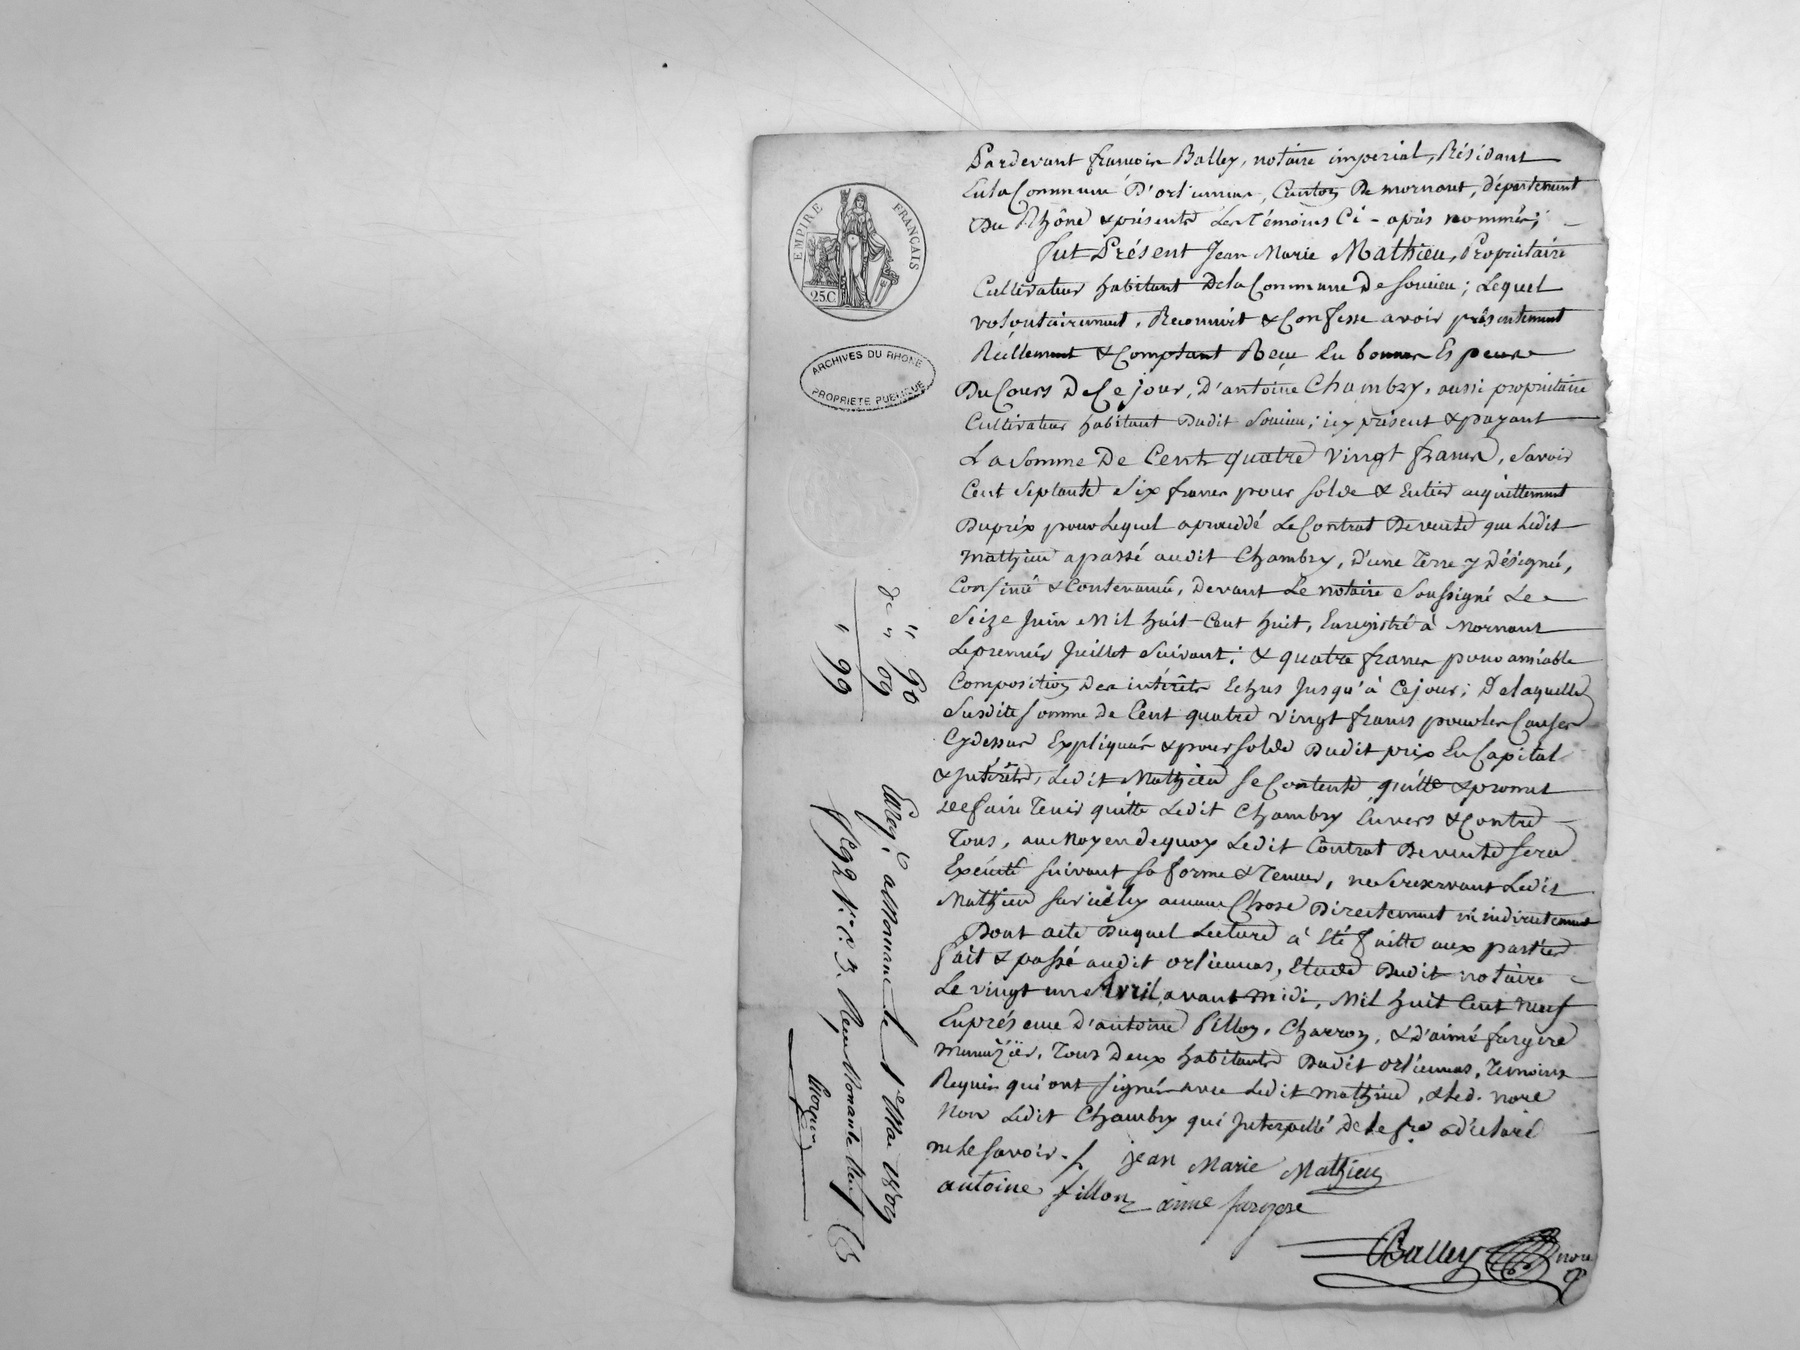 Pardevant françois Balley, notaire imperial, Résidant
En la Commune D'orlienas, Canton De mornant, département
Du Rhône & présents Les Témoins Ci-après nommés;
fut Présent Jean Marie Mathieu, Propriétaire
Cultivateur habitant De la Commune De soucieu; Lequel
volontairement, Reconnoit & Confesse avoir présentement
Réellement & Comptant Reçu En bonnes Especes
Du Cours De Ce jour, D'antoine Chambry, aussi propriétaire
Cultivateur habitant Dudit Soucieu; icy présent & payant
La Somme De Cent quatre vingt francs, Savoir
Cent Septante Six francs pour solde & Entier acquittement
Du prix pour Lequel a procédé Le Contrat De vente que Ledit
Mathieu a passé audit Chambry, D'une Terre y Désignée,
Confinée & Contenancée, Devant Le notaire Soussigné Le
Seize Juin Mil huit Cent huit, Enregistré à Mornant
Le premier Juillet Suivant; & quatre francs pour amiable
Composition Des intérêts Echus Jusqu'à Ce jour; De laquelle
Susdite somme de Cent quatre vingt francs pour les Causes
Cydessus Expliquées & pour solde Dudit prix En Capital
& Intérêts, Ledit Mathieu se Contente, quitte & promet
De faire Tenir quitte Ledit Chambry Envers & Contre
Tous, au Moyen de quoy Ledit Contrat De vente sera
Exécuté suivant sa forme & Teneur, ne se reservant Ledit
Mathieu sur icelly aucune Chose Directement ni indirectement
Dont acte Duquel Lecture à Eté faitte aux parties
fait & passé audit orlienas, Etude Dudit notaire
Le vingt un Avril, avant midi, Mil huit Cent Neuf
En présence D'antoine Pillon, Charron, & D'aimé fargere
Menuizier, Tous Deux habitants Dudit orlienas, Temoins
Requis qui ont signés avec Ledit Mathieu, & Led. nore
Non Ledit Chambry qui Interpellé De le fre a déclaré
ne le savoir.
jean Marie Mathieu
antoine pillon aimé fargere
Balley nore
EMPIRE FRANÇAIS
25C
ARCHIVES DU RHONE
PROPRIETE PUBLIQUE
" 90
" 09
" 99
Enreg. à Mornant le 1er Mai 1809
Reçu Nonante Neuf